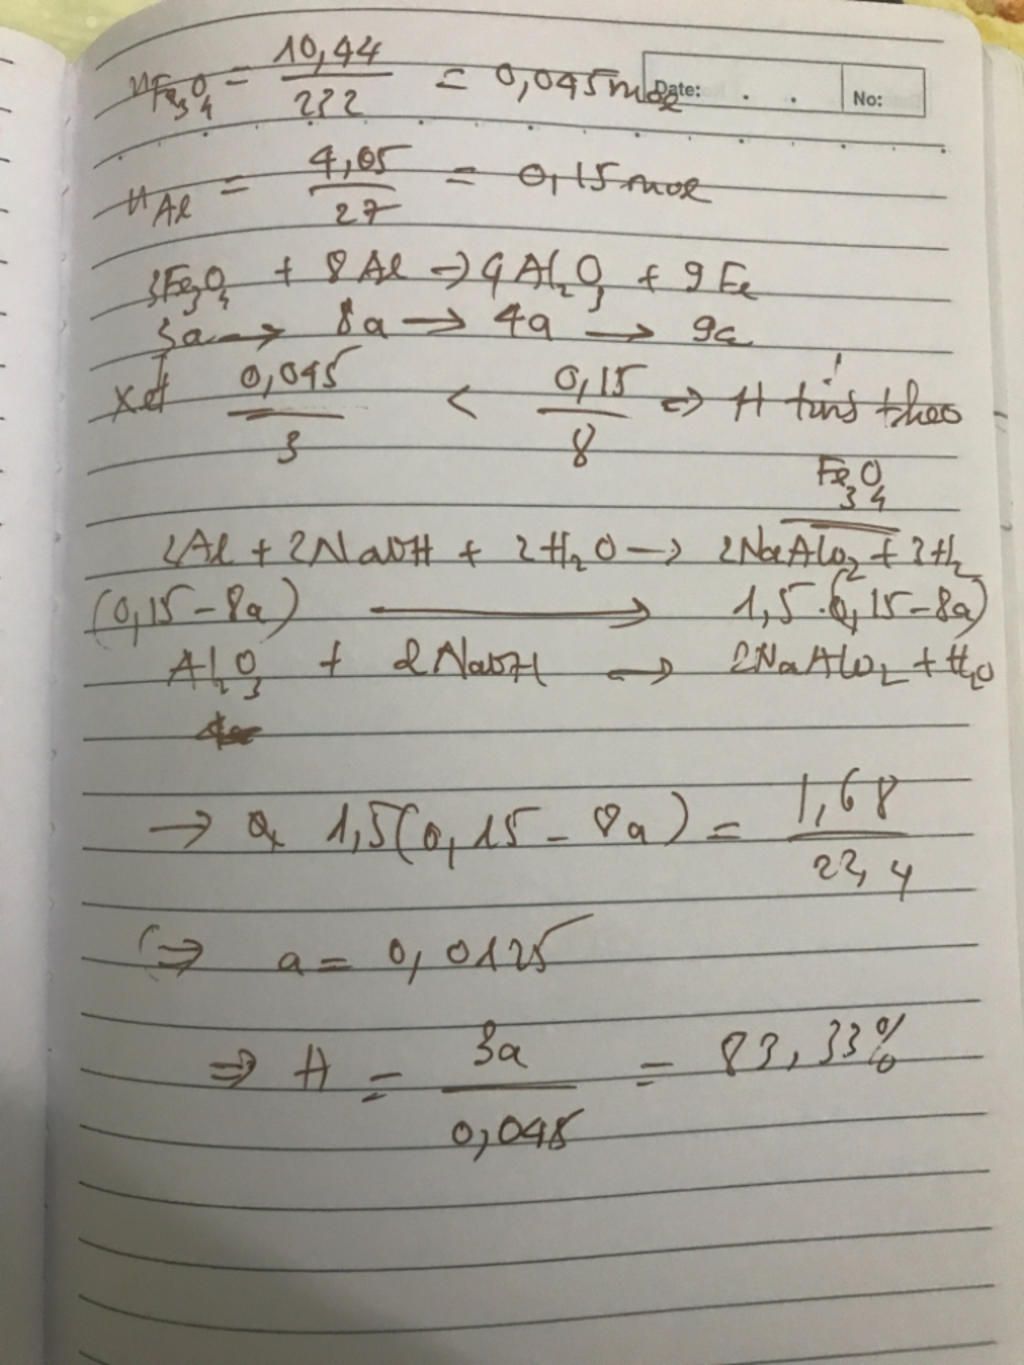 Date: No:
nFe3O4 = 10,44/232 = 0,045 mol
nAl = 4,05/27 = 0,15 mol
3Fe3O4 + 8Al → 4Al2O3 + 9Fe
3a → 8a → 4a → 9a
Xét 0,045/3 < 0,15/8 => H tính theo
Fe3O4
2Al + 2NaOH + 2H2O → 2NaAlO2 + 3H2
(0,15-8a) → 1,5.(0,15-8a)
Al2O3 + 2NaOH → 2NaAlO2 + H2O
→ 1,5(0,15-8a) = 1,68/22,4
<=> a = 0,0125
=> H = 3a/0,045 = 83,33%